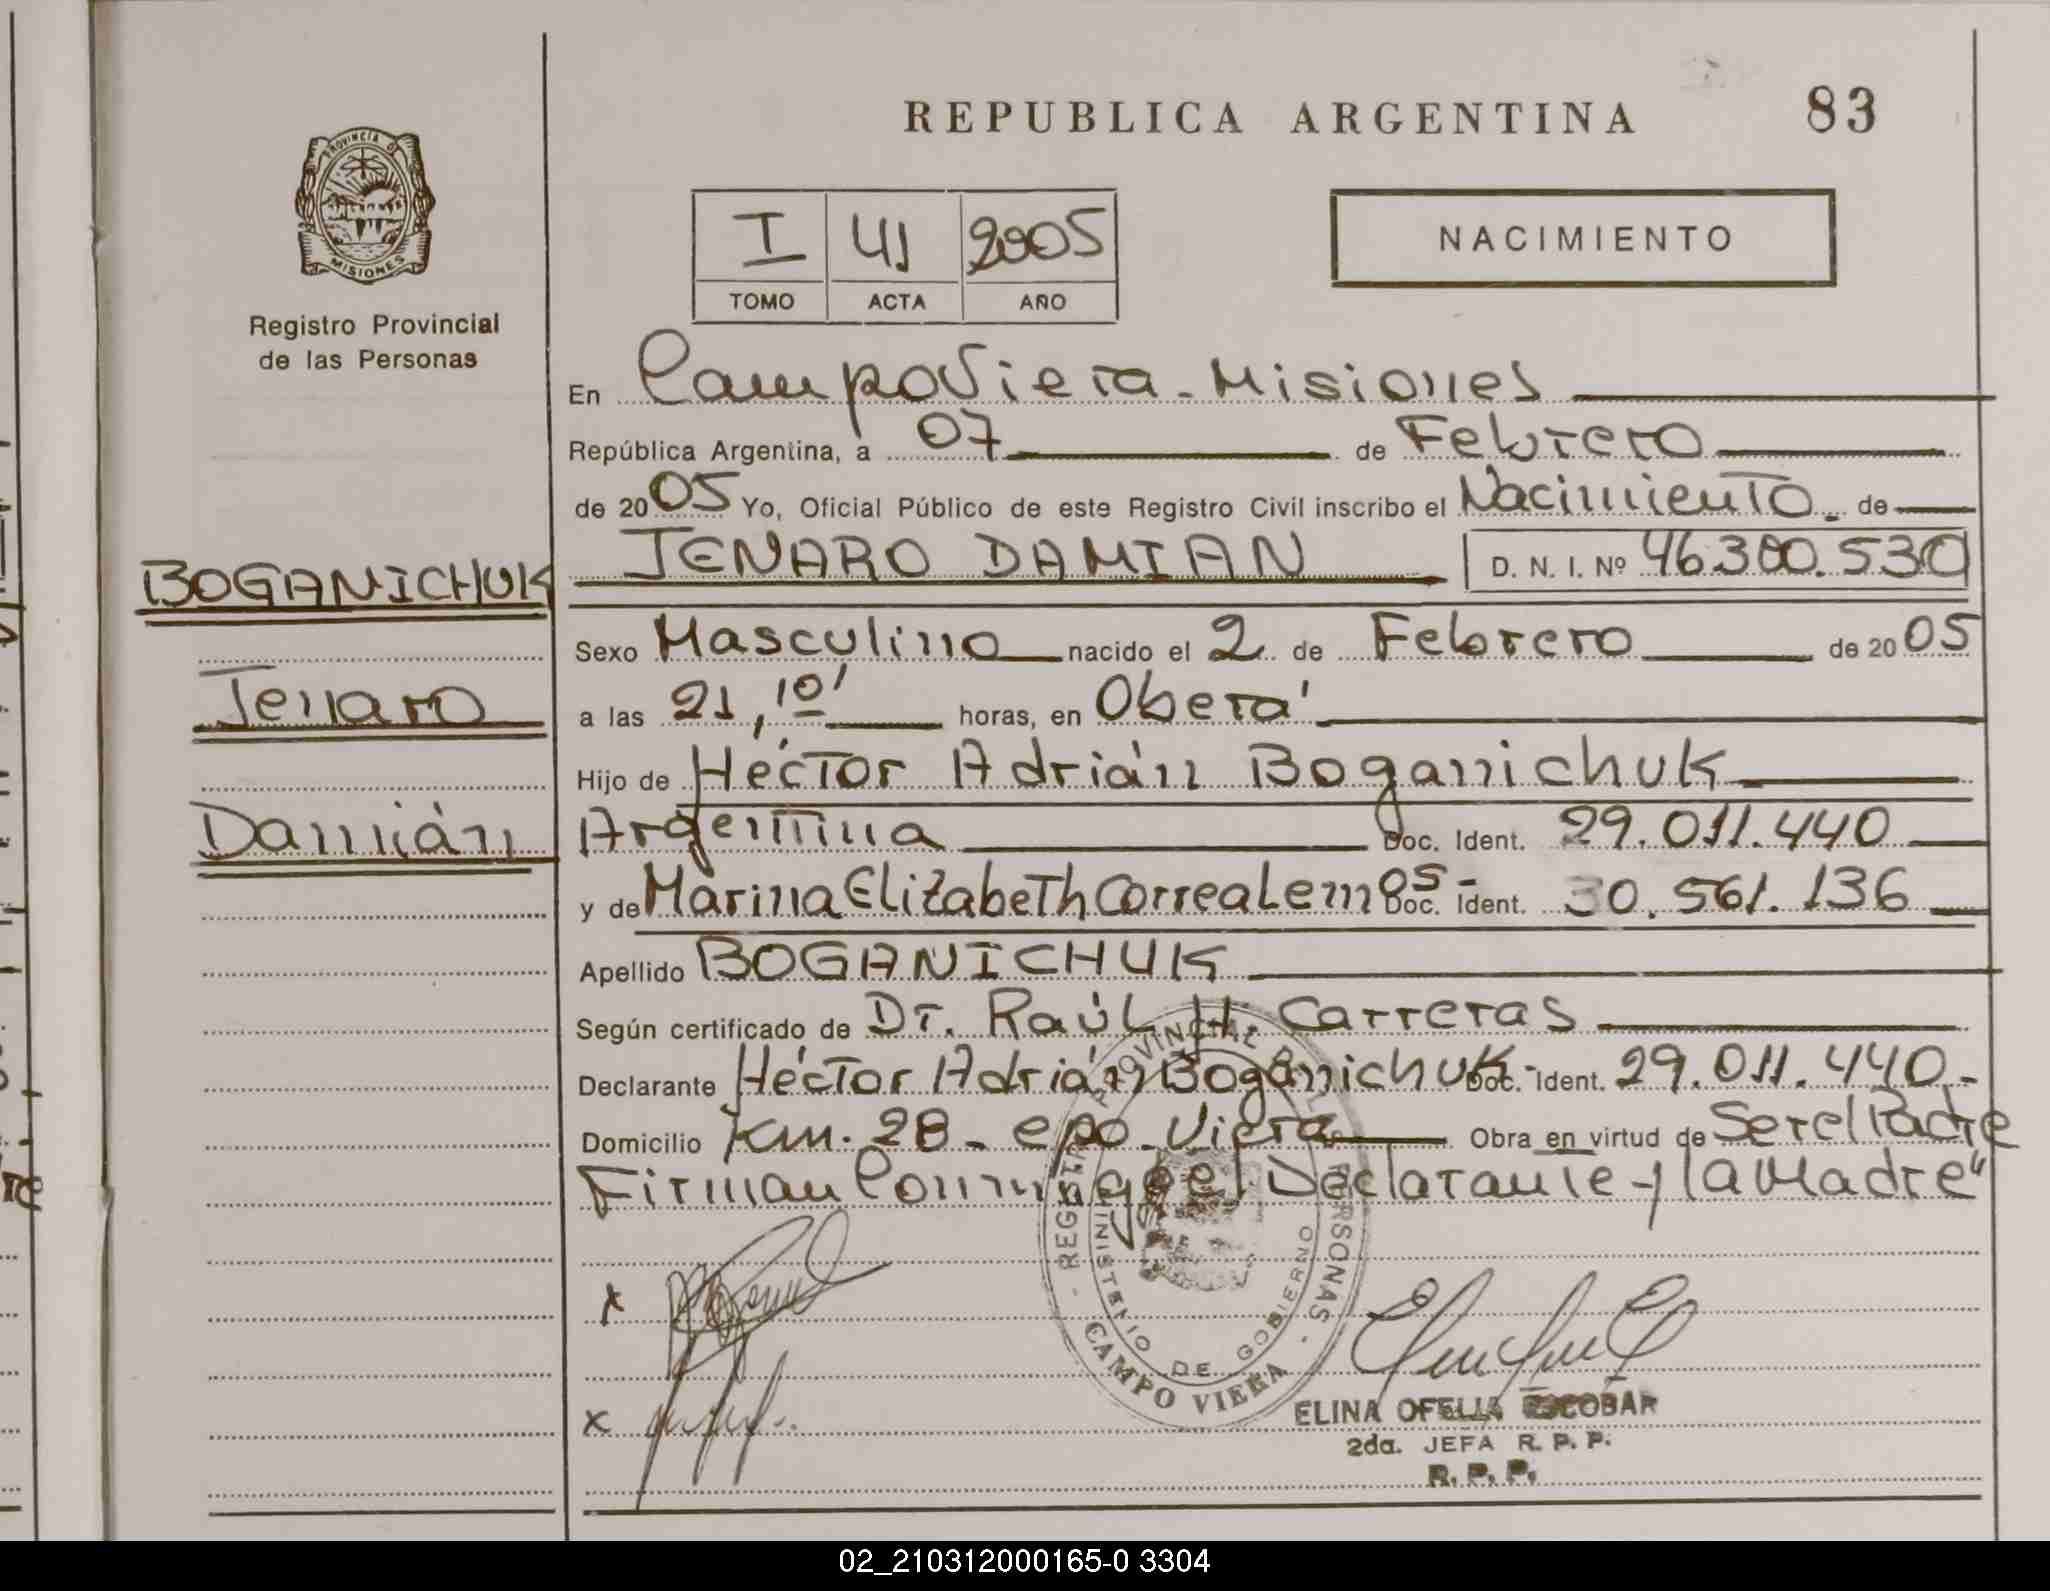 REPUBLICA ARGENTINA 83
PROVINCIA DE MISIONES
Registro Provincial
de las Personas
I 41 2005
TOMO ACTA AÑO
NACIMIENTO
En Campo Viera - Misiones
República Argentina, a 07 de Febrero
de 2005 Yo, Oficial Público de este Registro Civil inscribo el Nacimiento. de
JENARO DAMIAN D. N. I. Nº 46.300.530
BOGANICHUK
Sexo Masculino nacido el 2 de Febrero de 2005
Jenaro
a las 21,10' horas, en Oberá
Hijo de Héctor Adrián Boganichuk
Damián
Argentina Doc. Ident. 29.011.440
y de Marina Elizabeth Correa Lemos - Doc. Ident. 30.561.136
Apellido BOGANICHUK
Según certificado de Dr. Raúl H. Carreras
Declarante Héctor Adrián Boganichuk - Doc. Ident. 29.011.440 -
Domicilio Km. 28 - cpo. Viera Obra en virtud de Ser el Padre
Firman Conmigo el Declarante y la Madre"
REGISTRO PROVINCIAL DE LAS PERSONAS
MINISTERIO DE GOBIERNO
CAMPO VIERA
x
x
ELINA OFELIA ESCOBAR
2da. JEFA R. P. P.
R. P. P.
02_210312000165-0 3304